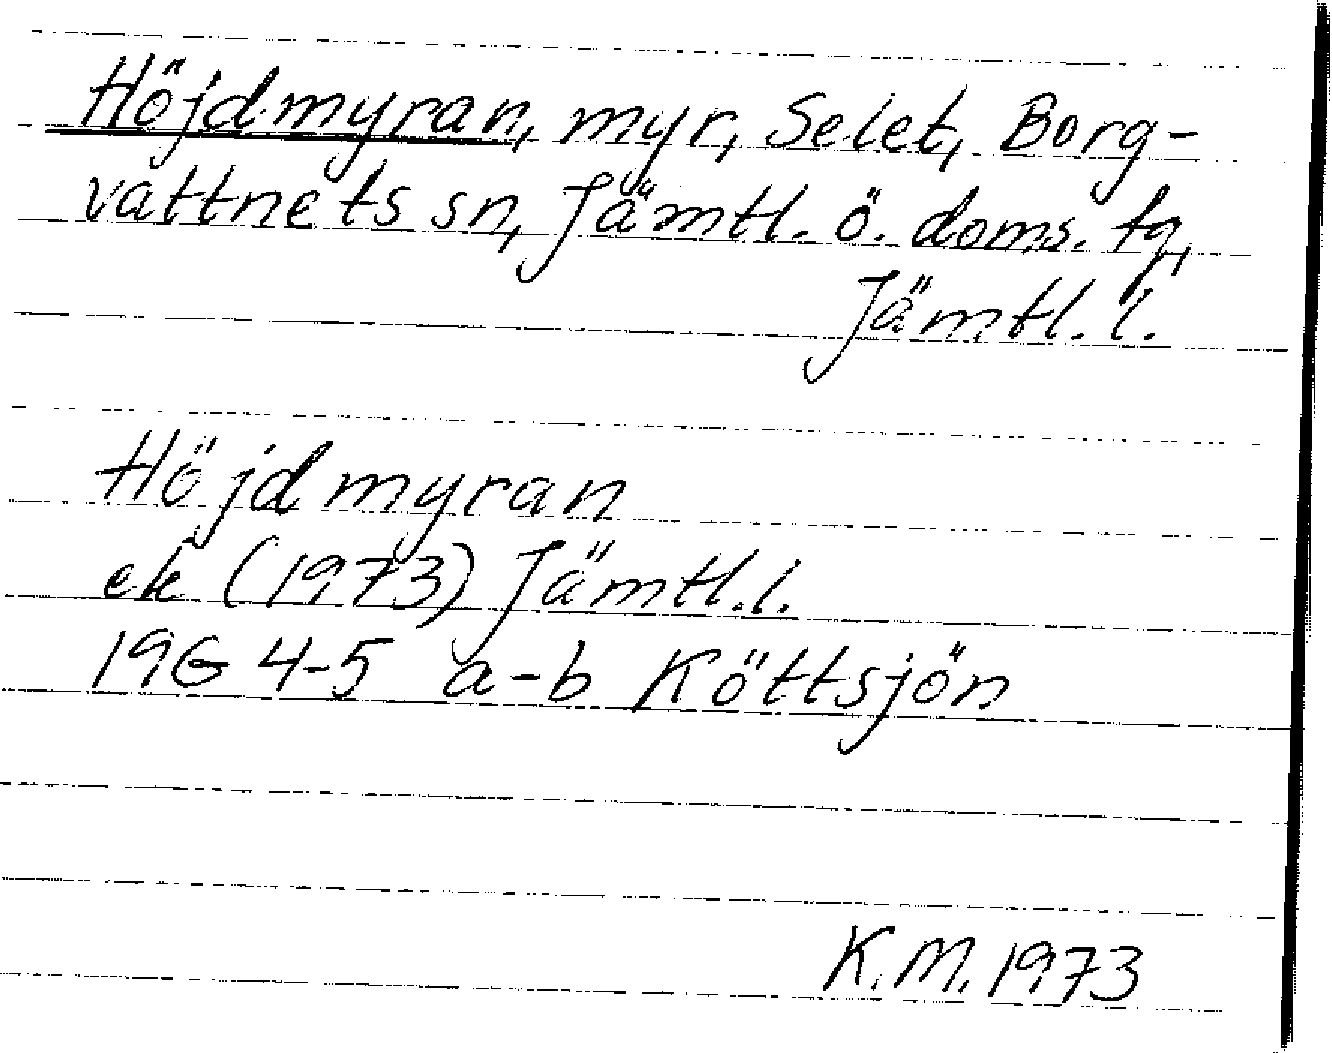 Höjdmyran, myr, Selet, Borg-
vattnets sn, Jämtl. ö. doms. tg,
Jämtl. l.
Höjdmyran
ek (1973) Jämtl. l.
19G 4-5 a-b Köttsjön
K.M. 1973